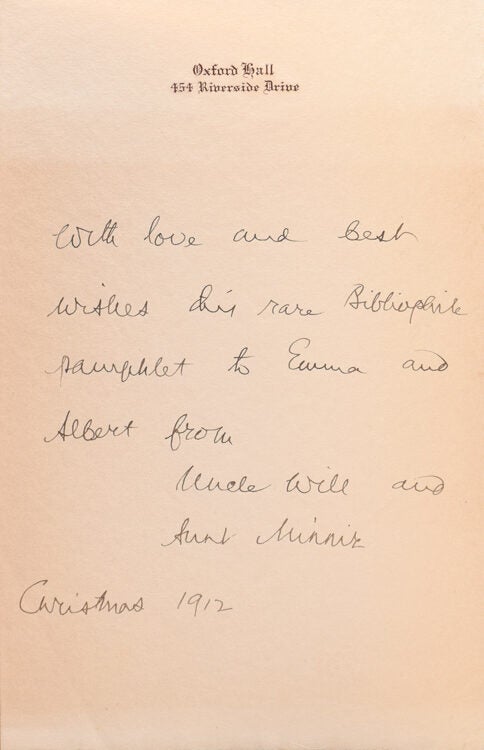 Oxford Hall
454 Riverside Drive
With love and best
wishes this rare Bibliophile
pamphlet to Emma and
Albert from
Uncle Will and
Aunt Minnie
Christmas 1912